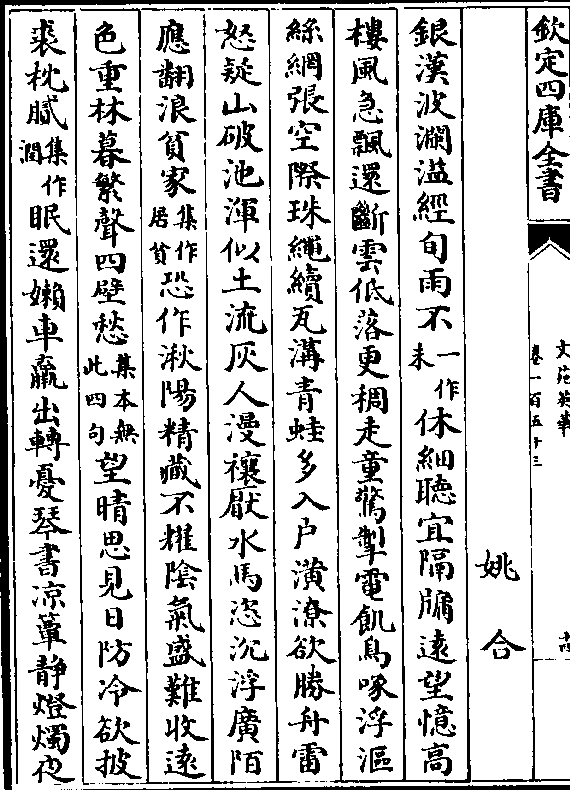 欽定四庫全書
文苑英華
卷一百五十三
姚合
銀漢波瀾溢經旬雨不一作未休細聽宜隔牖遠望憶高
樓風急飄還斷雲低落更稠走童驚掣電飢鳥啄浮漚
絲網張空際珠繩續瓦溝青蛙多入户潢潦欲勝舟雷
怒疑山破池渾似土流灰人漫禳厭水馬恣沉浮廣陌
應翻浪貧家集作居貧恐作湫陽精藏不耀陰氣盛難收遠
色重林暮繁聲四壁愁集本無此四句望晴思見日防冷欲披
裘枕膩集作潤眠還嬾車羸出轉憂琴書凉簟静燈燭夜